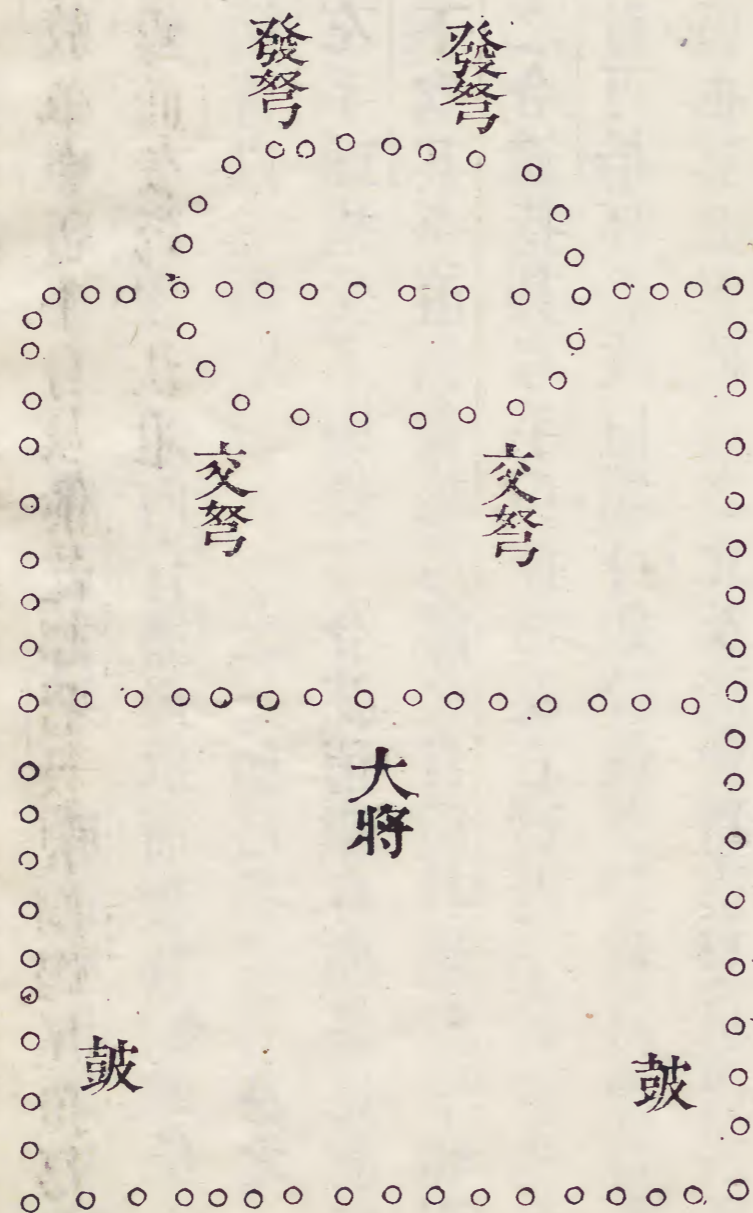 發弩
發弩
交弩
交弩
大將
皷
皷